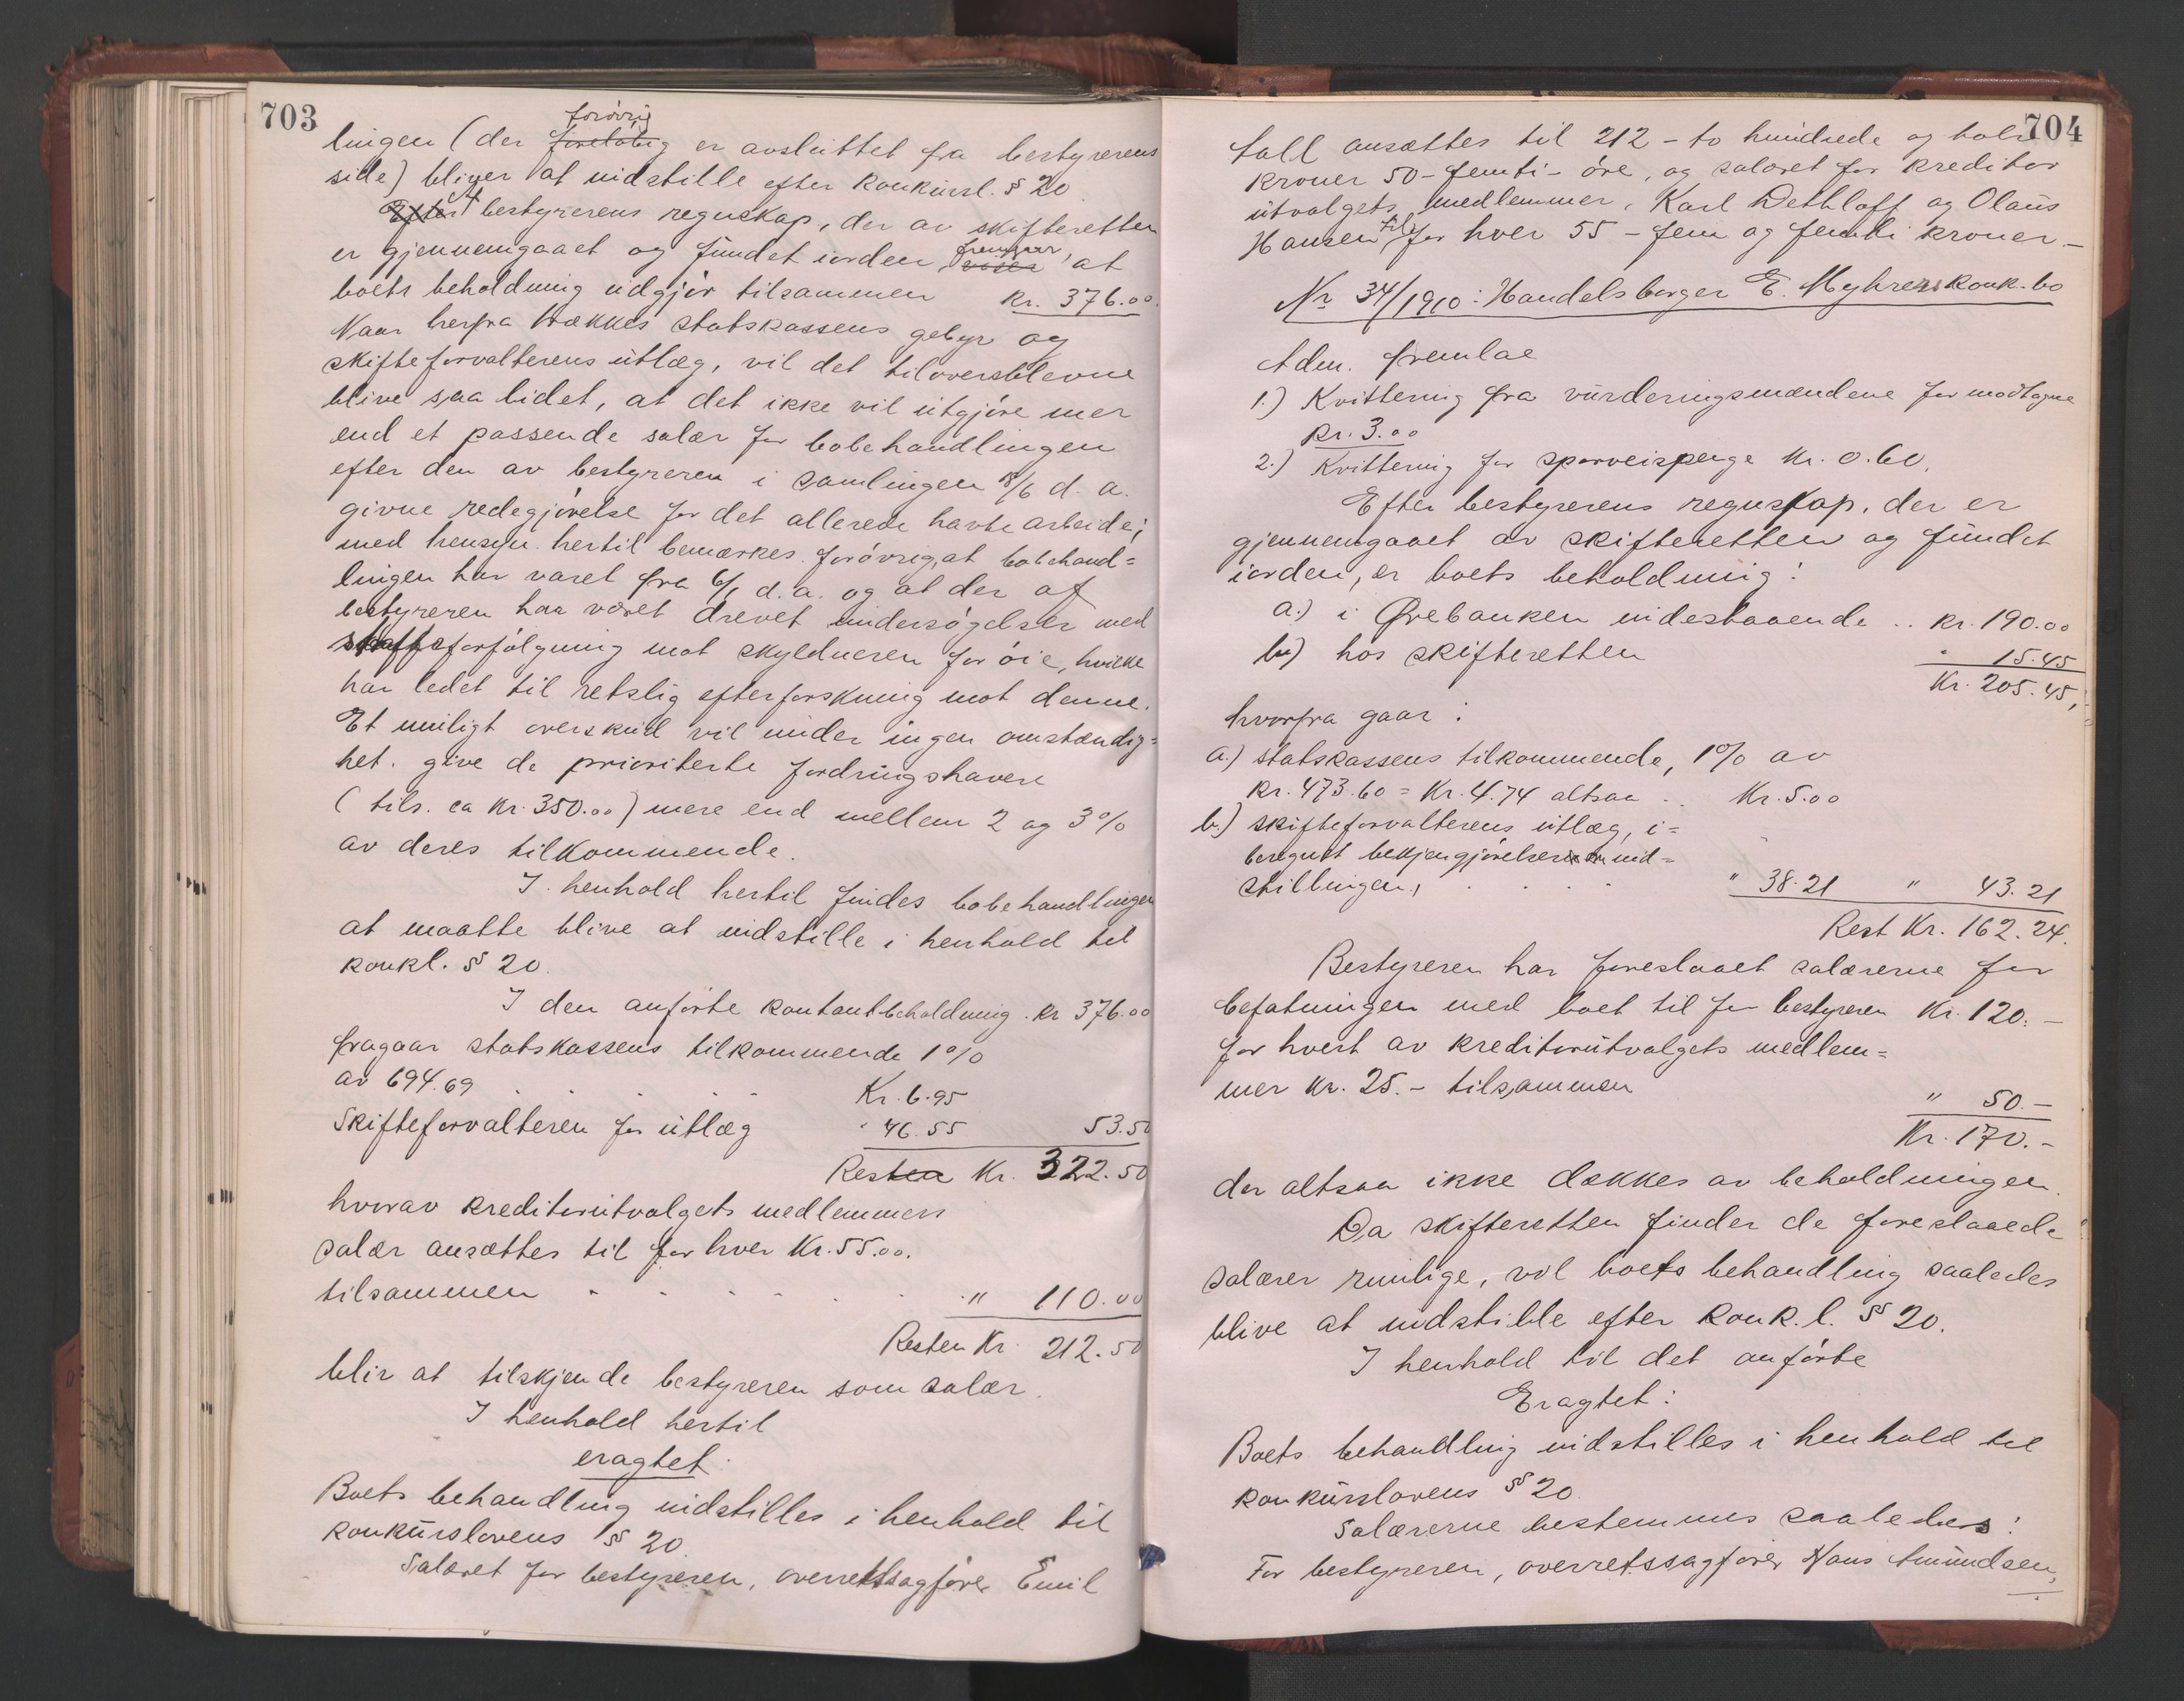 703
lingen (der forøvrig er avsluttet fra bestyrerens
side) bliver at indstille efter konkursl. § 20
Av bestyrerens regnskap, der av skifteretten
er gjennemgaaet og fundet iorden, fremgaar, at
boets beholdning udgjør tilsammen Kr. 376.00.
Naar herfra trækkes statskassens gebyr og
skifteforvalterens utlæg, vil det tiloversblevne
blive saa lidet, at det ikke vil utgjøre mer
end et passende salær for bobehandlingen
efter den av bestyreren i samlingen 18/6 d. a.
givne redegjørelse for det allerede havte arbeide;
med hensyn hertil bemærkes forøvrig, at bobehand=
lingen har varet fra 6/1 d. a. og at der af
bestyreren har været drevet undersøgelser med
straffeforfølgning mot skyldneren for øie, hvilke
har ledet til retslig efterforskning mot denne.
Et muligt overskud vil under ingen omstændig=
het give de prioriterte fordringshavere
(tils. ca Kr. 350.00) mere end mellem 2 og 3 %
av deres tilkommende.
I henhold hertil findes bobehandlingen
at maatte blive at indstille i henhold til
konkl. § 20.
I den anførte kontantbeholdning . Kr 376.00
fragaar statskassens tilkommende 1 %
av 694.69 . . . . Kr. 6.95
Skifteforvalteren for utlæg " 46.55 53.50
Rest Kr. 322.50
hvorav kreditorutvalgets medlemmers
salær ansættes til for hver Kr. 55.00.
tilsammen . . . . . . " 110.00
Resten Kr. 212.50
blir at tilskjende bestyreren som salær.
I henhold hertil
eragtet:
Boets behandling indstilles i henhold til
konkurslovens § 20.
Salæret for bestyreren, overretssagfører Emil
704
fall ansættes til 212 - to hundrede og tolv
kroner 50 - femti - øre, og salæret for kreditor
utvalgets medlemmer, Karl Dethloff og Olaus
Hansen til for hver 55 - fem og femti kroner -
Nr 34/1910: Handelsborger E. Myhres konk.bo
Adm. fremlae
1.) Kvittering fra vurderingsmændene for modtagne
Kr. 3.00
2.) Kvittering for sporveispenge Kr. 0.60.
Efter bestyrerens regnskap, der er
gjennemgaaet av skifteretten og fundet
iorden, er boets beholdning:
a.) i Ørebanken indestaaende .. kr. 190.00
b.) hos skifteretten " 15.45
Kr. 205.45,
hvorfra gaar:
a.) statskassens tilkommende, 1 % av
Kr. 473.60 = Kr. 4.74 altsaa .. Kr. 5.00
b.) skifteforvalterens utlæg, i=
beregnet bekjengjørelsen ind=
stillingen, . . . . " 38.21 " 43.21
Rest Kr. 162.24.
Bestyreren har foreslaaet salærerne for
befatningen med boet til for bestyreren Kr. 120.-
for hvert av kreditorutvalgets medlem=
mer Kr. 25.- tilsammen
" 50.-
Kr. 170.-
der altsaa ikke dækkes av beholdningen.
Da skifteretten finder de foreslaaede
salærer rimlige, vil boets behandling saaledes
blive at indstille efter konk.l. § 20.
I henhold til det anførte
Eragtet:
Boets behandling indstilles i henhold til
konkurslovens § 20.
Salærerne bestemmes saaledes:
For bestyreren, overretssagfører Hans Amundsen,